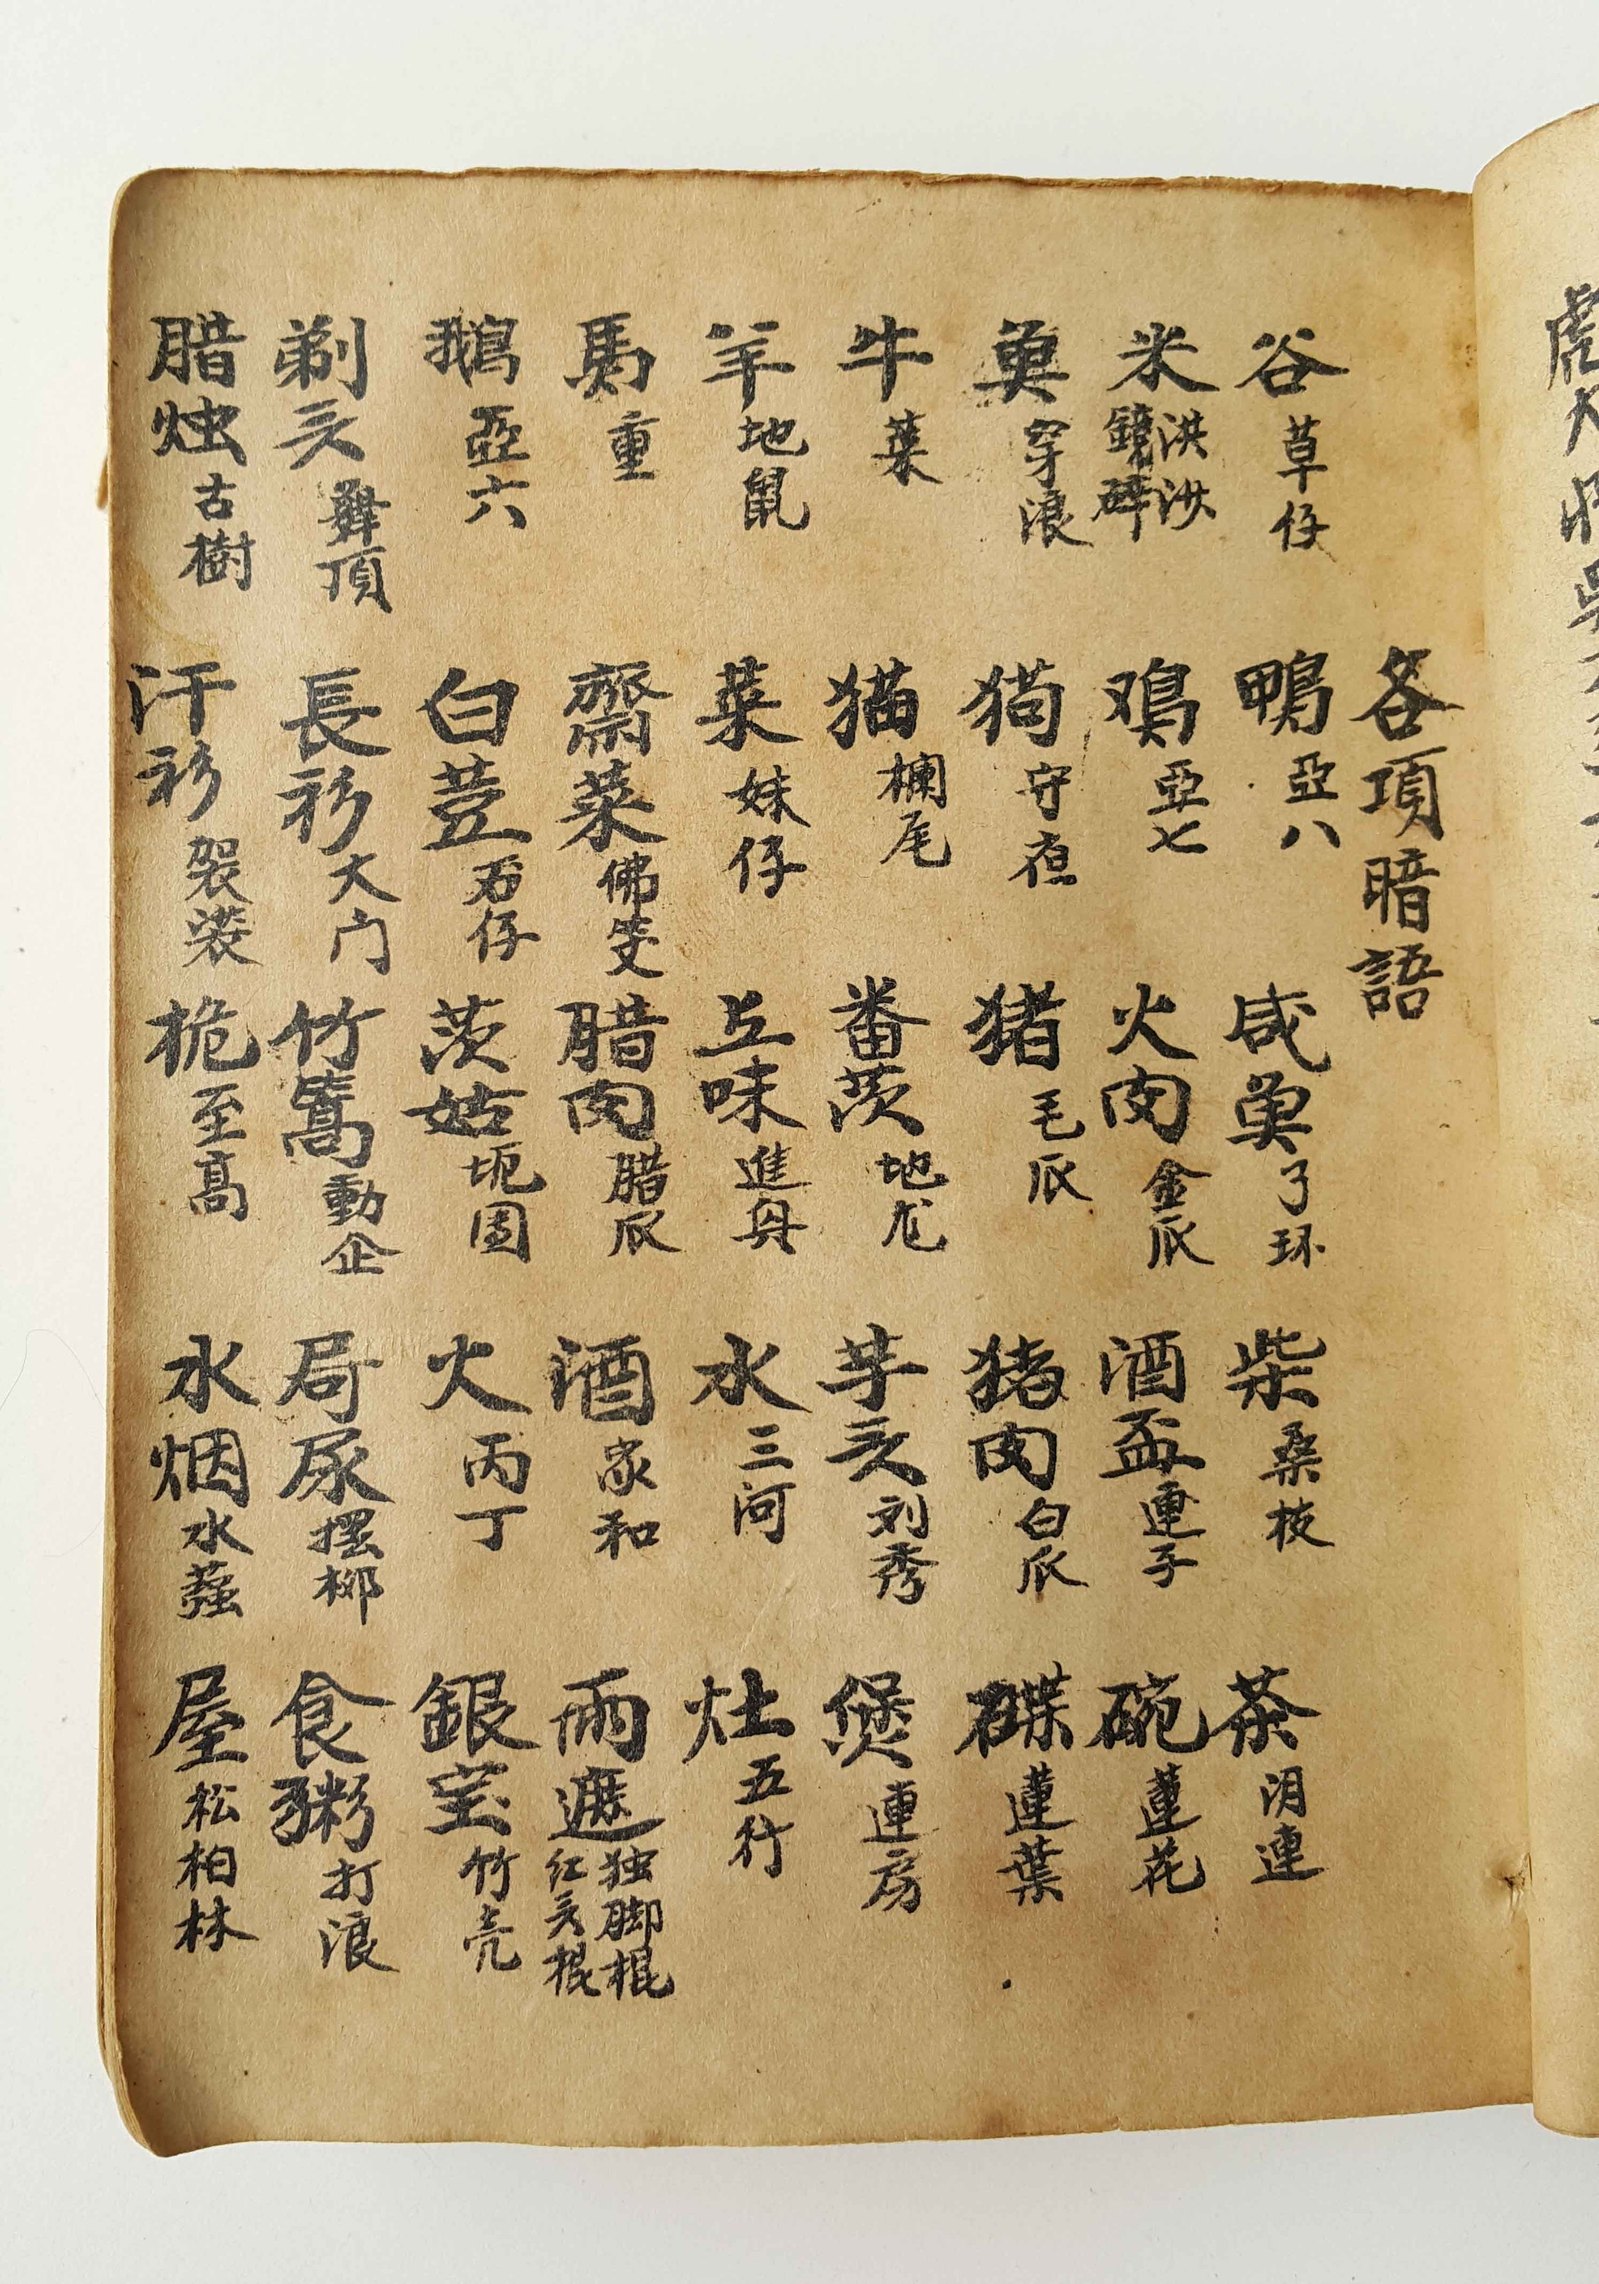 各項暗語
谷 草仔 鴨 亞八 咸魚 了环 柴 桑枝 茶 連
米 洪沙 鏡碎 鸡 亞七 火肉 金瓜 酒盃 連子 碗 蓮花
魚 穿浪 狗 守夜 猪 毛瓜 猪肉 白瓜 碟 蓮葉
牛 猫 欄尾 番茨 地龙 芋头 刘秀 煲 連房
羊 地鼠 菜 妹仔 上味 進丹 水 三河 灶 五行
馬 重 齋菜 佛 腊肉 腊瓜 酒 家和 雨遮 独脚棍 红头棍
鵝 亞六 白荳 石仔 茨姑 坭 火 丙丁 銀宝 竹壳
剃头 舞頂 長衫 大门 竹篙 動企 局尿 摆柳 食粥 打浪
腊烛 古樹 汗衫 袈裟 桅 至高 水烟 水 屋 松柏林